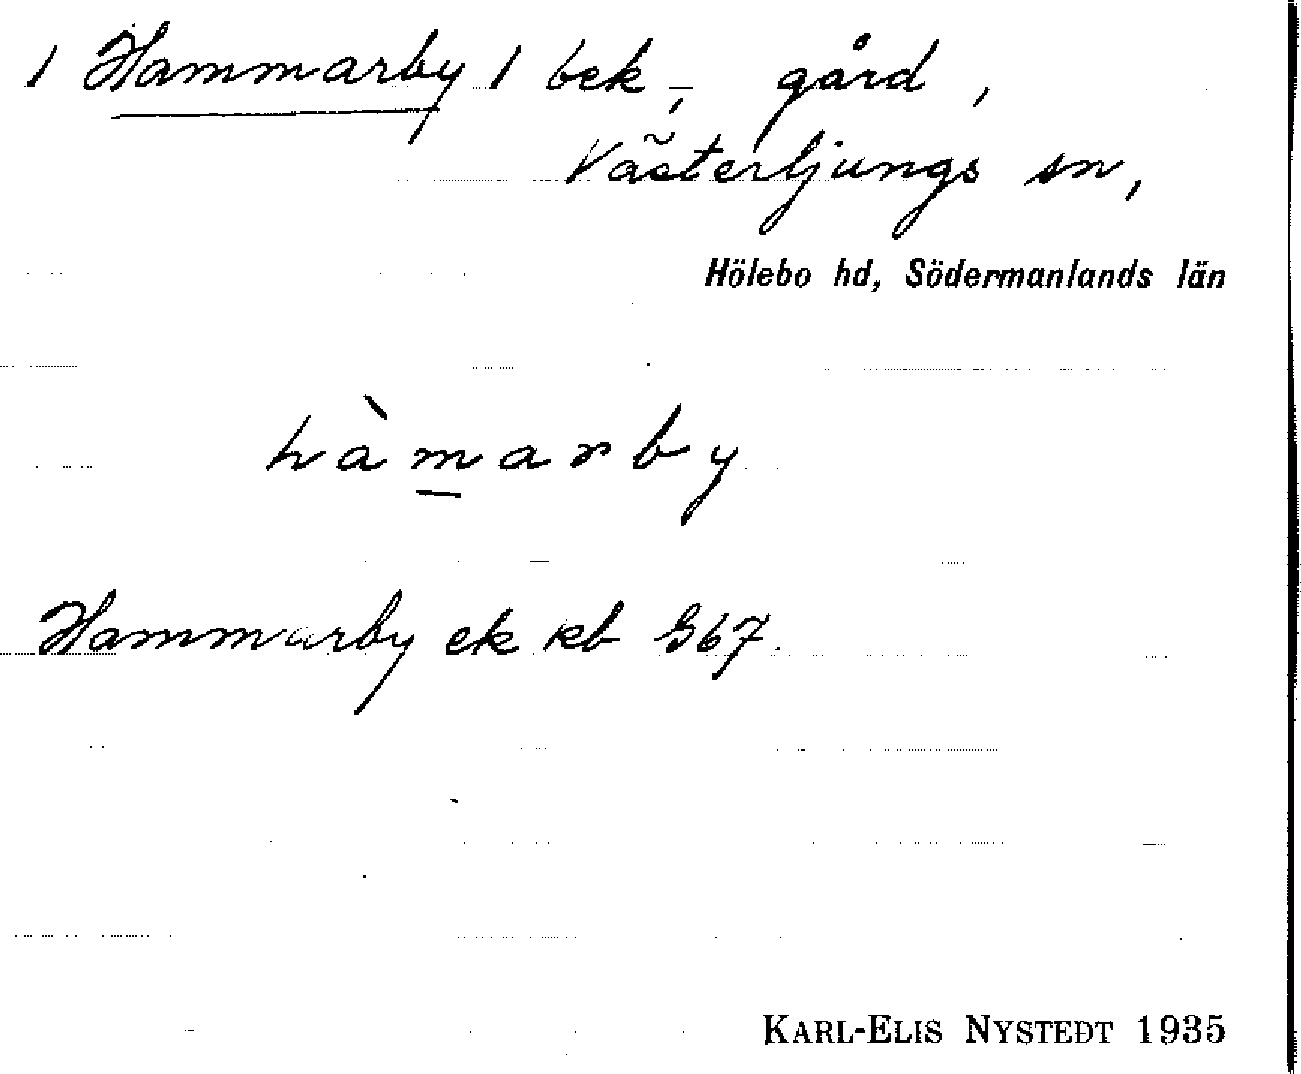 1 Hammarby 1 bek, gård,
Västerljungs sn,
Hölebo hd, Södermanlands län
hàm̲arby
Hammarby ek kb 567.
KARL-ELIS NYSTEDT 1935